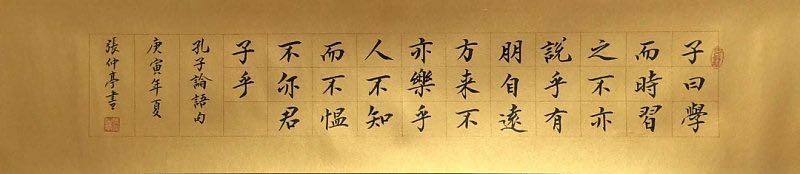 子曰學
而時習
之不亦
説乎有
朋自遠
方来不
亦樂乎
人不知
而不愠
不亦君
子乎
孔子論語句
庚寅年夏
張仲亭書